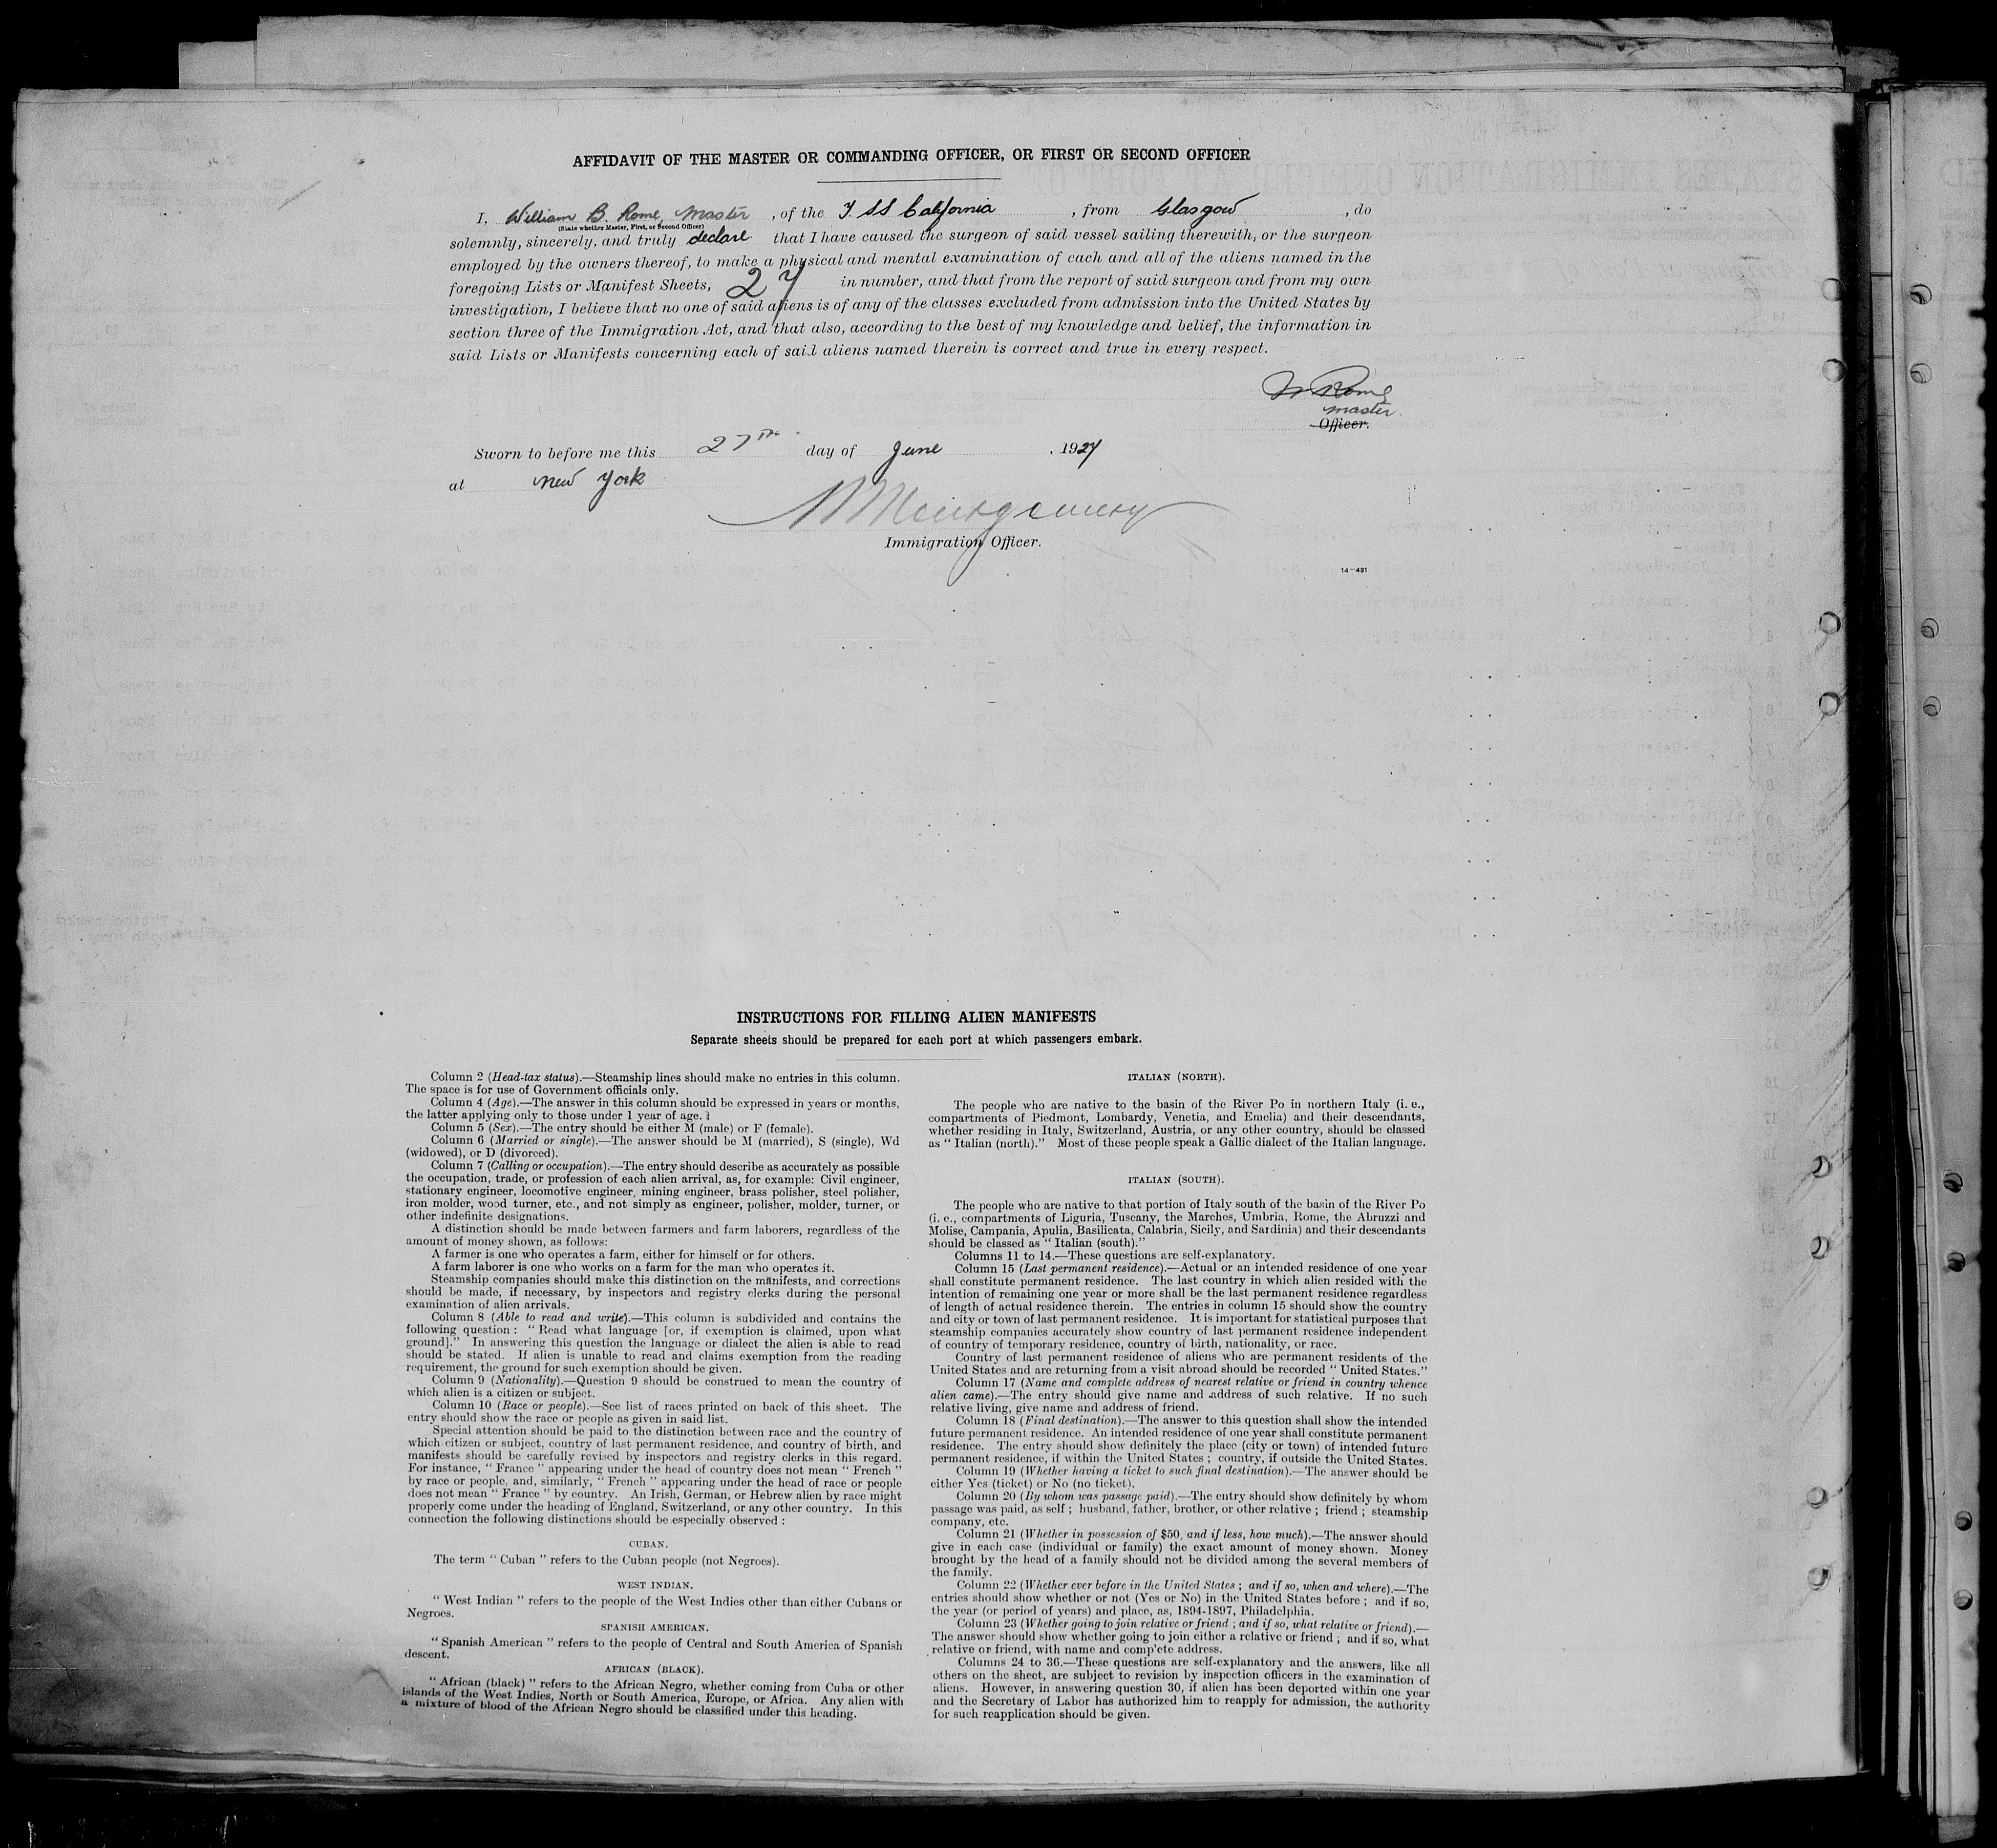 AFFIDAVIT OF THE MASTER OR COMMANDING OFFICER, OR FIRST OR SECOND OFFICER
I, William B. Rome, Master, of the T. SS California, from Glasgow, do
(State whether Master, First, or Second Officer)
solemnly, sincerely, and truly declare that I have caused the surgeon of said vessel sailing therewith, or the surgeon
employed by the owners thereof, to make a physical and mental examination of each and all of the aliens named in the
foregoing Lists or Manifest Sheets, 27 in number, and that from the report of said surgeon and from my own
investigation, I believe that no one of said aliens is of any of the classes excluded from admission into the United States by
section three of the Immigration Act, and that also, according to the best of my knowledge and belief, the information in
said Lists or Manifests concerning each of said aliens named therein is correct and true in every respect.
W Rome
Master
Officer.
Sworn to before me this 27th day of June, 1927
at New York
Montgomery
Immigration Officer.
14—491
INSTRUCTIONS FOR FILLING ALIEN MANIFESTS
Separate sheets should be prepared for each port at which passengers embark.
Column 2 (Head-tax status).—Steamship lines should make no entries in this column.
The space is for use of Government officials only.
Column 4 (Age).—The answer in this column should be expressed in years or months,
the latter applying only to those under 1 year of age.
Column 5 (Sex).—The entry should be either M (male) or F (female).
Column 6 (Married or single).—The answer should be M (married), S (single), Wd
(widowed), or D (divorced).
Column 7 (Calling or occupation).—The entry should describe as accurately as possible
the occupation, trade, or profession of each alien arrival, as, for example: Civil engineer,
stationary engineer, locomotive engineer, mining engineer, brass polisher, steel polisher,
iron molder, wood turner, etc., and not simply as engineer, polisher, molder, turner, or
other indefinite designations.
A distinction should be made between farmers and farm laborers, regardless of the
amount of money shown, as follows:
A farmer is one who operates a farm, either for himself or for others.
A farm laborer is one who works on a farm for the man who operates it.
Steamship companies should make this distinction on the manifests, and corrections
should be made, if necessary, by inspectors and registry clerks during the personal
examination of alien arrivals.
Column 8 (Able to read and write).—This column is subdivided and contains the
following question: "Read what language [or, if exemption is claimed, upon what
ground]." In answering this question the language or dialect the alien is able to read
should be stated. If alien is unable to read and claims exemption from the reading
requirement, the ground for such exemption should be given.
Column 9 (Nationality).—Question 9 should be construed to mean the country of
which alien is a citizen or subject.
Column 10 (Race or people).—See list of races printed on back of this sheet. The
entry should show the race or people as given in said list.
Special attention should be paid to the distinction between race and the country of
which citizen or subject, country of last permanent residence, and country of birth, and
manifests should be carefully revised by inspectors and registry clerks in this regard.
For instance, "France" appearing under the head of country does not mean "French"
by race or people, and, similarly, "French" appearing under the head of race or people
does not mean "France" by country. An Irish, German, or Hebrew alien by race might
properly come under the heading of England, Switzerland, or any other country. In this
connection the following distinctions should be especially observed:
CUBAN.
The term "Cuban" refers to the Cuban people (not Negroes).
WEST INDIAN.
"West Indian" refers to the people of the West Indies other than either Cubans or
Negroes.
SPANISH AMERICAN.
"Spanish American" refers to the people of Central and South America of Spanish
descent.
AFRICAN (BLACK).
"African (black)" refers to the African Negro, whether coming from Cuba or other
islands of the West Indies, North or South America, Europe, or Africa. Any alien with
a mixture of blood of the African Negro should be classified under this heading.
ITALIAN (NORTH).
The people who are native to the basin of the River Po in northern Italy (i. e.,
compartments of Piedmont, Lombardy, Venetia, and Emelia) and their descendants,
whether residing in Italy, Switzerland, Austria, or any other country, should be classed
as "Italian (north)." Most of these people speak a Gallic dialect of the Italian language.
ITALIAN (SOUTH).
The people who are native to that portion of Italy south of the basin of the River Po
(i. e., compartments of Liguria, Tuscany, the Marches, Umbria, Rome, the Abruzzi and
Molise, Campania, Apulia, Basilicata, Calabria, Sicily, and Sardinia) and their descendants
should be classed as "Italian (south)."
Columns 11 to 14.—These questions are self-explanatory.
Column 15 (Last permanent residence).—Actual or an intended residence of one year
shall constitute permanent residence. The last country in which alien resided with the
intention of remaining one year or more shall be the last permanent residence regardless
of length of actual residence therein. The entries in column 15 should show the country
and city or town of last permanent residence. It is important for statistical purposes that
steamship companies accurately show country of last permanent residence independent
of country of temporary residence, country of birth, nationality, or race.
Country of last permanent residence of aliens who are permanent residents of the
United States and are returning from a visit abroad should be recorded "United States."
Column 17 (Name and complete address of nearest relative or friend in country whence
alien came).—The entry should give name and address of such relative. If no such
relative living, give name and address of friend.
Column 18 (Final destination).—The answer to this question shall show the intended
future permanent residence. An intended residence of one year shall constitute permanent
residence. The entry should show definitely the place (city or town) of intended future
permanent residence, if within the United States; country, if outside the United States.
Column 19 (Whether having a ticket to such final destination).—The answer should be
either Yes (ticket) or No (no ticket).
Column 20 (By whom was passage paid).—The entry should show definitely by whom
passage was paid, as self; husband, father, brother, or other relative; friend; steamship
company, etc.
Column 21 (Whether in possession of $50, and if less, how much).—The answer should
give in each case (individual or family) the exact amount of money shown. Money
brought by the head of a family should not be divided among the several members of
the family.
Column 22 (Whether ever before in the United States; and if so, when and where).—The
entries should show whether or not (Yes or No) in the United States before; and if so,
the year (or period of years) and place, as, 1894-1897, Philadelphia.
Column 23 (Whether going to join relative or friend; and if so, what relative or friend).—
The answer should show whether going to join either a relative or friend; and if so, what
relative or friend, with name and complete address.
Columns 24 to 36.—These questions are self-explanatory and the answers, like all
others on the sheet, are subject to revision by inspection officers in the examination of
aliens. However, in answering question 30, if alien has been deported within one year
and the Secretary of Labor has authorized him to reapply for admission, the authority
for such reapplication should be given.